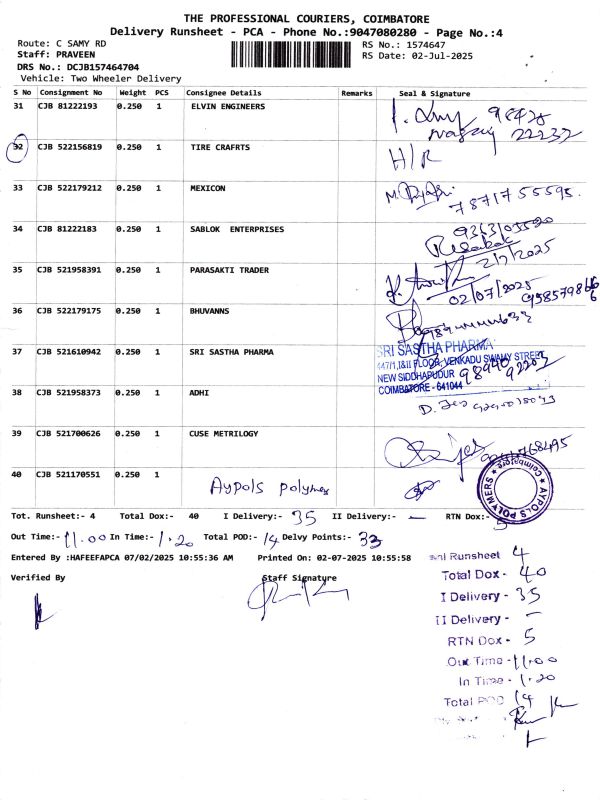 THE PROFESSIONAL COURIERS, COIMBATORE
Delivery Runsheet - PCA - Phone No.:9047080280 - Page No.:4
Route: C SAMY RD
RS No.: 1574647
Staff: PRAVEEN
RS Date: 02-Jul-2025
DRS No.: DCJB157464704
Vehicle: Two Wheeler Delivery
S No Consignment No Weight PCS Consignee Details Remarks Seal & Signature
31 CJB 81222193 0.250 1 ELVIN ENGINEERS
22232
32 CJB 522156819 0.250 1 TIRE CRAFRTS H/R
33 CJB 522179212 0.250 1 MEXICON
7871755595
34 CJB 81222183 0.250 1 SABLOK ENTERPRISES
2/7/2025
35 CJB 521958391 0.250 1 PARASAKTI TRADER
02/07/2025
36 CJB 522179175 0.250 1 BHUVANNS
37 CJB 521610942 0.250 1 SRI SASTHA PHARMA
SRI SASTHA PHARMA
447/1, I&II FLOOR, VENKADU SWAMY STREET
NEW SIDDHAPUDUR
COIMBATORE - 641044
98940 92202
38 CJB 521958373 0.250 1 ADHI
39 CJB 521700626 0.250 1 CUSE METRILOGY
40 CJB 521170551 0.250 1 Aypols polymers
AYPOLS POLYMERS Coimbatore
Tot. Runsheet:- 4 Total Dox:- 40 I Delivery:- 35 II Delivery:- — RTN Dox:- 5
Out Time:- 11.00 In Time:- 1.20 Total POD:- 14 Delvy Points:- 33
Entered By :HAFEEFAPCA 07/02/2025 10:55:36 AM Printed On: 02-07-2025 10:55:58
Verified By Staff Signature
Runsheet 4
Total Dox - 40
I Delivery - 35
II Delivery - –
RTN Dox - 5
Out Time - 11.00
In Time - 1.20
Total POD 14